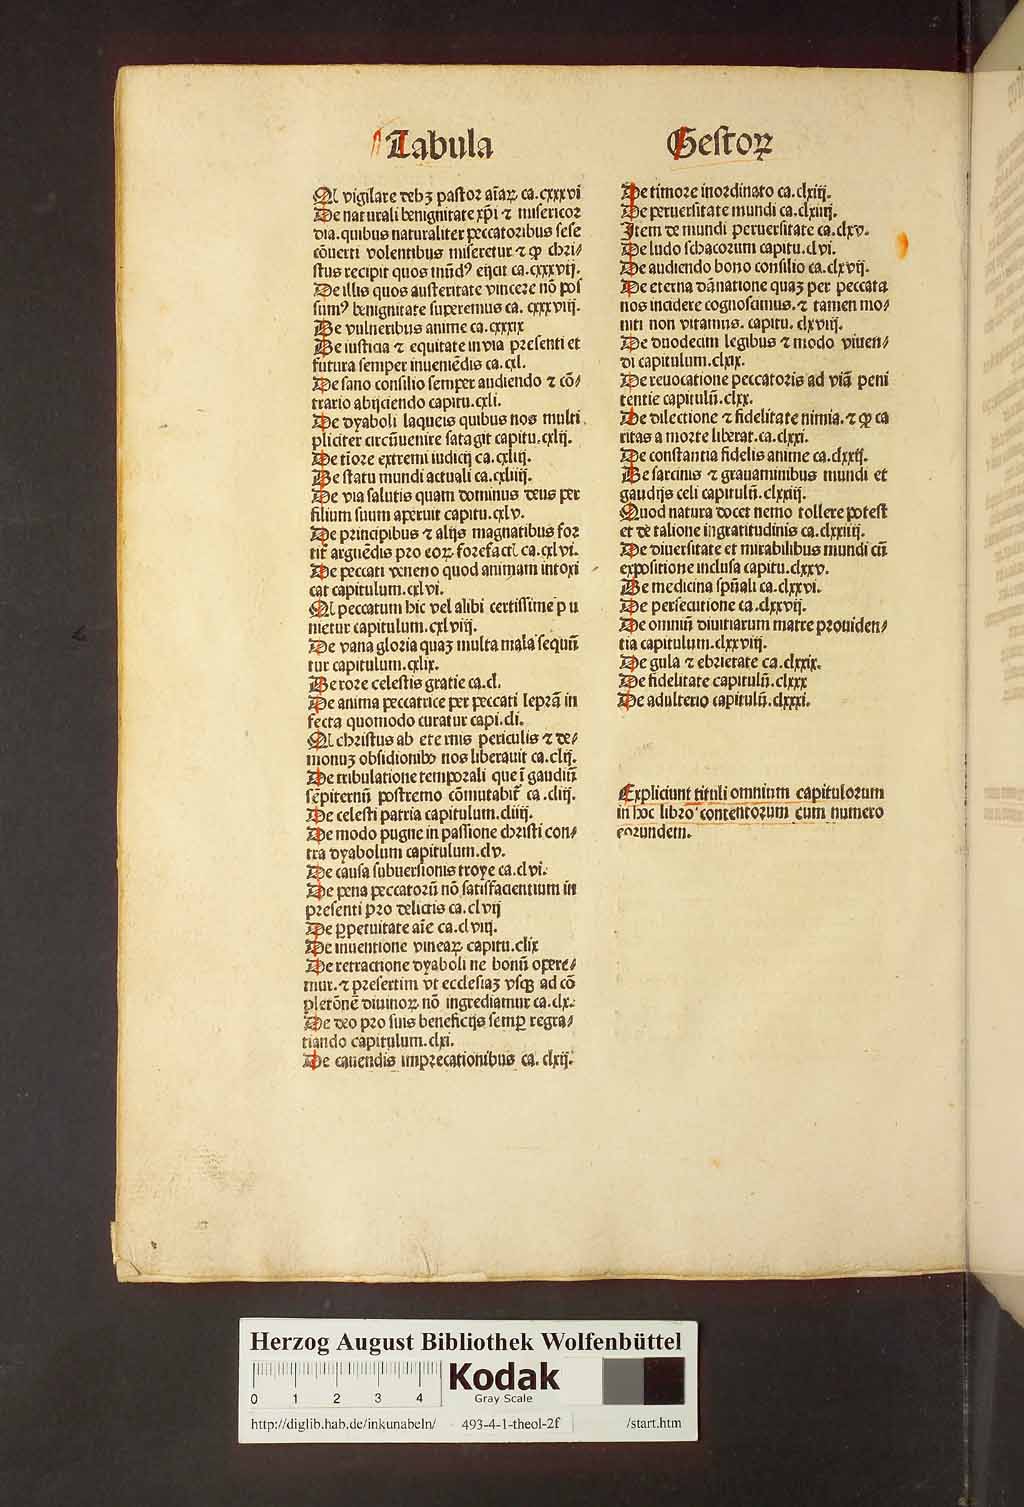 Tabula Gestoꝝ
Ql vigilare debꝫ pastor aīaꝝ ca.cxxxvi
De naturali benignitate xp̄i ⁊ misericor
dia. quibus naturaliter peccatoribus sese
cōuerti volentibus miseretur ⁊ ꝙ chri⸗
stus recipit quos mūdꝰ eijcit ca.cxxxvij.
De illis quos austeritate vincere nō pos
sumꝰ benignitate superemus ca. cxxxviij.
De vulneribus anime ca.cxxxix
De iusticia ⁊ equitate in via presenti et
futura semper inueniēdis ca.cxl.
De sano consilio semper audiendo ⁊ cō⸗
trario abijciendo capitu.cxli.
De dyaboli laqueis quibus nos multi
pliciter circūuenire satagit capitu.cxlij.
De tiore extremi iudicij ca.cxliij.
De statu mundi actuali ca.cxliiij.
De via salutis quam dominus deus per
filium suum aperuit capitu.cxlv.
De principibus ⁊ alijs magnatibus for
tit̄ arguēdis pro eoꝝ forefactl ca.cxlvi.
De peccati veneno quod animam intoxi
cat capitulum.cxlvi.
Ql peccatum hic vel alibi certissime pu
nietur capitulum.cxlviij.
De vana gloria quaꝫ multa mala sequū
tur capitulum.cxlix.
De rore celestis gratie ca.cl.
De anima peccatrice per peccati leprā in
fecta quomodo curatur capi.cli.
Ql christus ab eternis periculis ⁊ de⸗
monuꝫ obsidionibꝰ nos liberauit ca.clij.
De tribulatione temporali que ī gaudiū
sēpiternū postremo cōmutabit̄ ca.cliij.
De celesti patria capitulum.cliiij.
De modo pugne in passione christi con⸗
tra dyabolum capitulum.clv.
De causa subuersionis troye ca.clvi.
De pena peccatorū nō satisfacientium in
presenti pro delictis ca.clvij
De ꝑpetuitate aīe ca.clviij.
De inuentione vineaꝝ capitu.clix
De retractione dyaboli ne bonū opere⸗
mur. ⁊ presertim vt ecclesiaꝫ vsqꝫ ad cō
pletōnē diuinoꝝ nō ingrediamur ca.clx.
De deo pro suis beneficijs semꝑ regra⸗
tiando capitulum.clxi.
De cauendis imprecationibus ca. clxij.
De timore inordinato ca.clxiij.
De peruersitate mundi ca.clxiiij.
Item de mundi peruersitate ca.clxv.
De ludo schacorum capitu.clvi.
De audiendo bono consilio ca.clxvij.
De eterna dānatione quaꝫ per peccata
nos incidere cognoscimus. ⁊ tamen mo⸗
niti non vitamus. capitu. clxviij.
De duodecim legibus ⁊ modo viuen⸗
di capitulum.clxix.
De reuocatione peccatoris ad viā peni
tentie capitulū.clxx.
De dilectione ⁊ fidelitate nimia. ⁊ ꝙ ca
ritas a morte liberat.ca.clxxi.
De constantia fidelis anime ca.clxxij.
De sarcinis ⁊ grauaminibus mundi et
gaudijs celi capitulū.clxxiij.
Quod natura docet nemo tollere potest
et de talione ingratitudinis ca.clxxiiij.
De diuersitate et mirabilibus mundi cū
expositione inclusa capitu.clxxv.
De medicina spūali ca.clxxvi.
De persecutione ca.clxxvij.
De omniū diuitiarum matre prouiden⸗
tia capitulum.clxxviij.
De gula ⁊ ebrietate ca.clxxix.
De fidelitate capitulū.clxxx
De adulterio capitulū.clxxxi.
Expliciunt tituli omnium capitulorum
in hoc libro contentorum cum numero
eorundem.
Herzog August Bibliothek Wolfenbüttel
0 1 2 3 4
Kodak
Gray Scale
http://diglib.hab.de/inkunabeln/ 493-4-1-theol-2f /start.htm